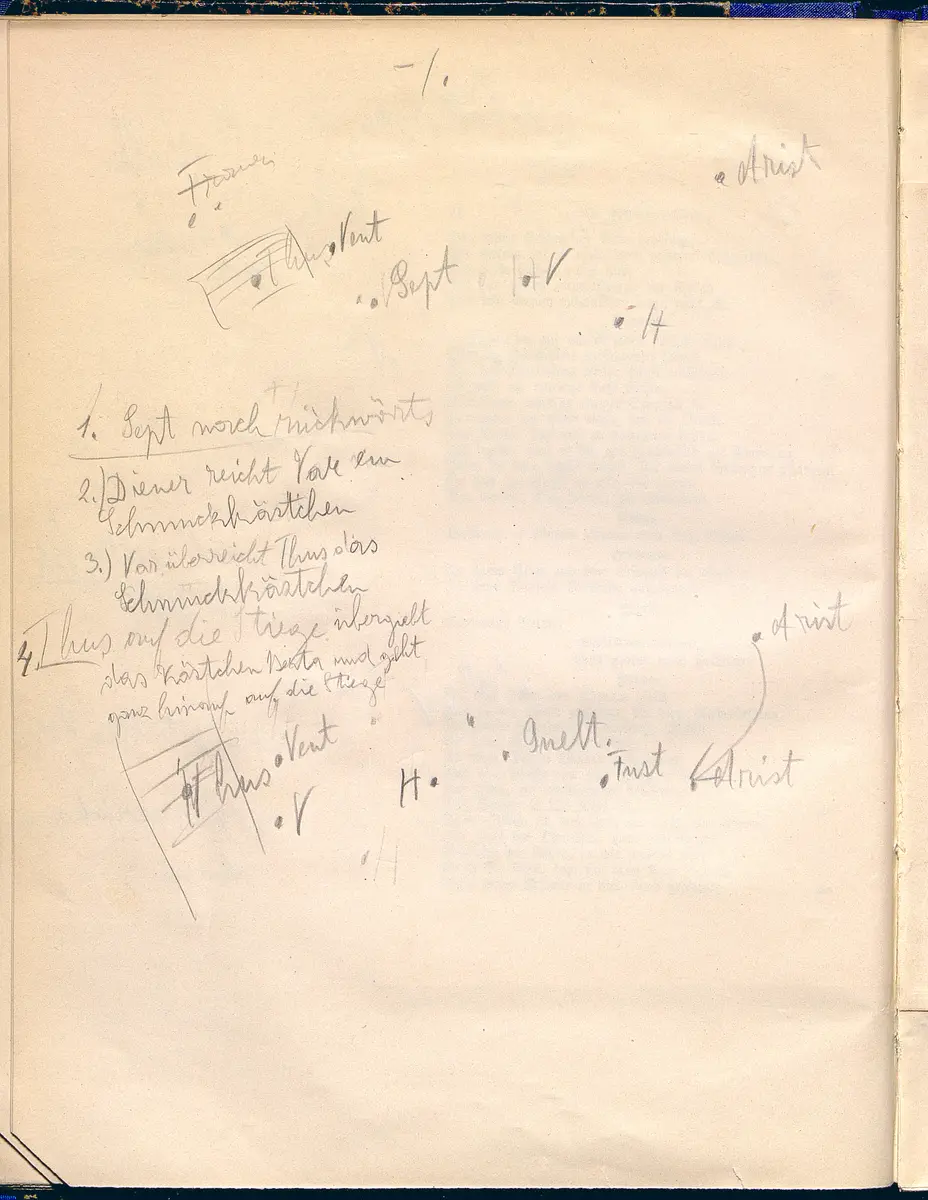 Arist
Thus Vent
Sept
V
H
1. Sept noch rückwärts
2.) Diener reicht Var ein
Schmuckkästchen
3.) Var überreicht Thus das
Schmuckkästchen
4. Thus auf die Stiege übergiebt
das Kästchen und geht
ganz hinauf auf die Stiege
Arist
Vent
Thus
V
H
Guelt.
Fust
Arist
H